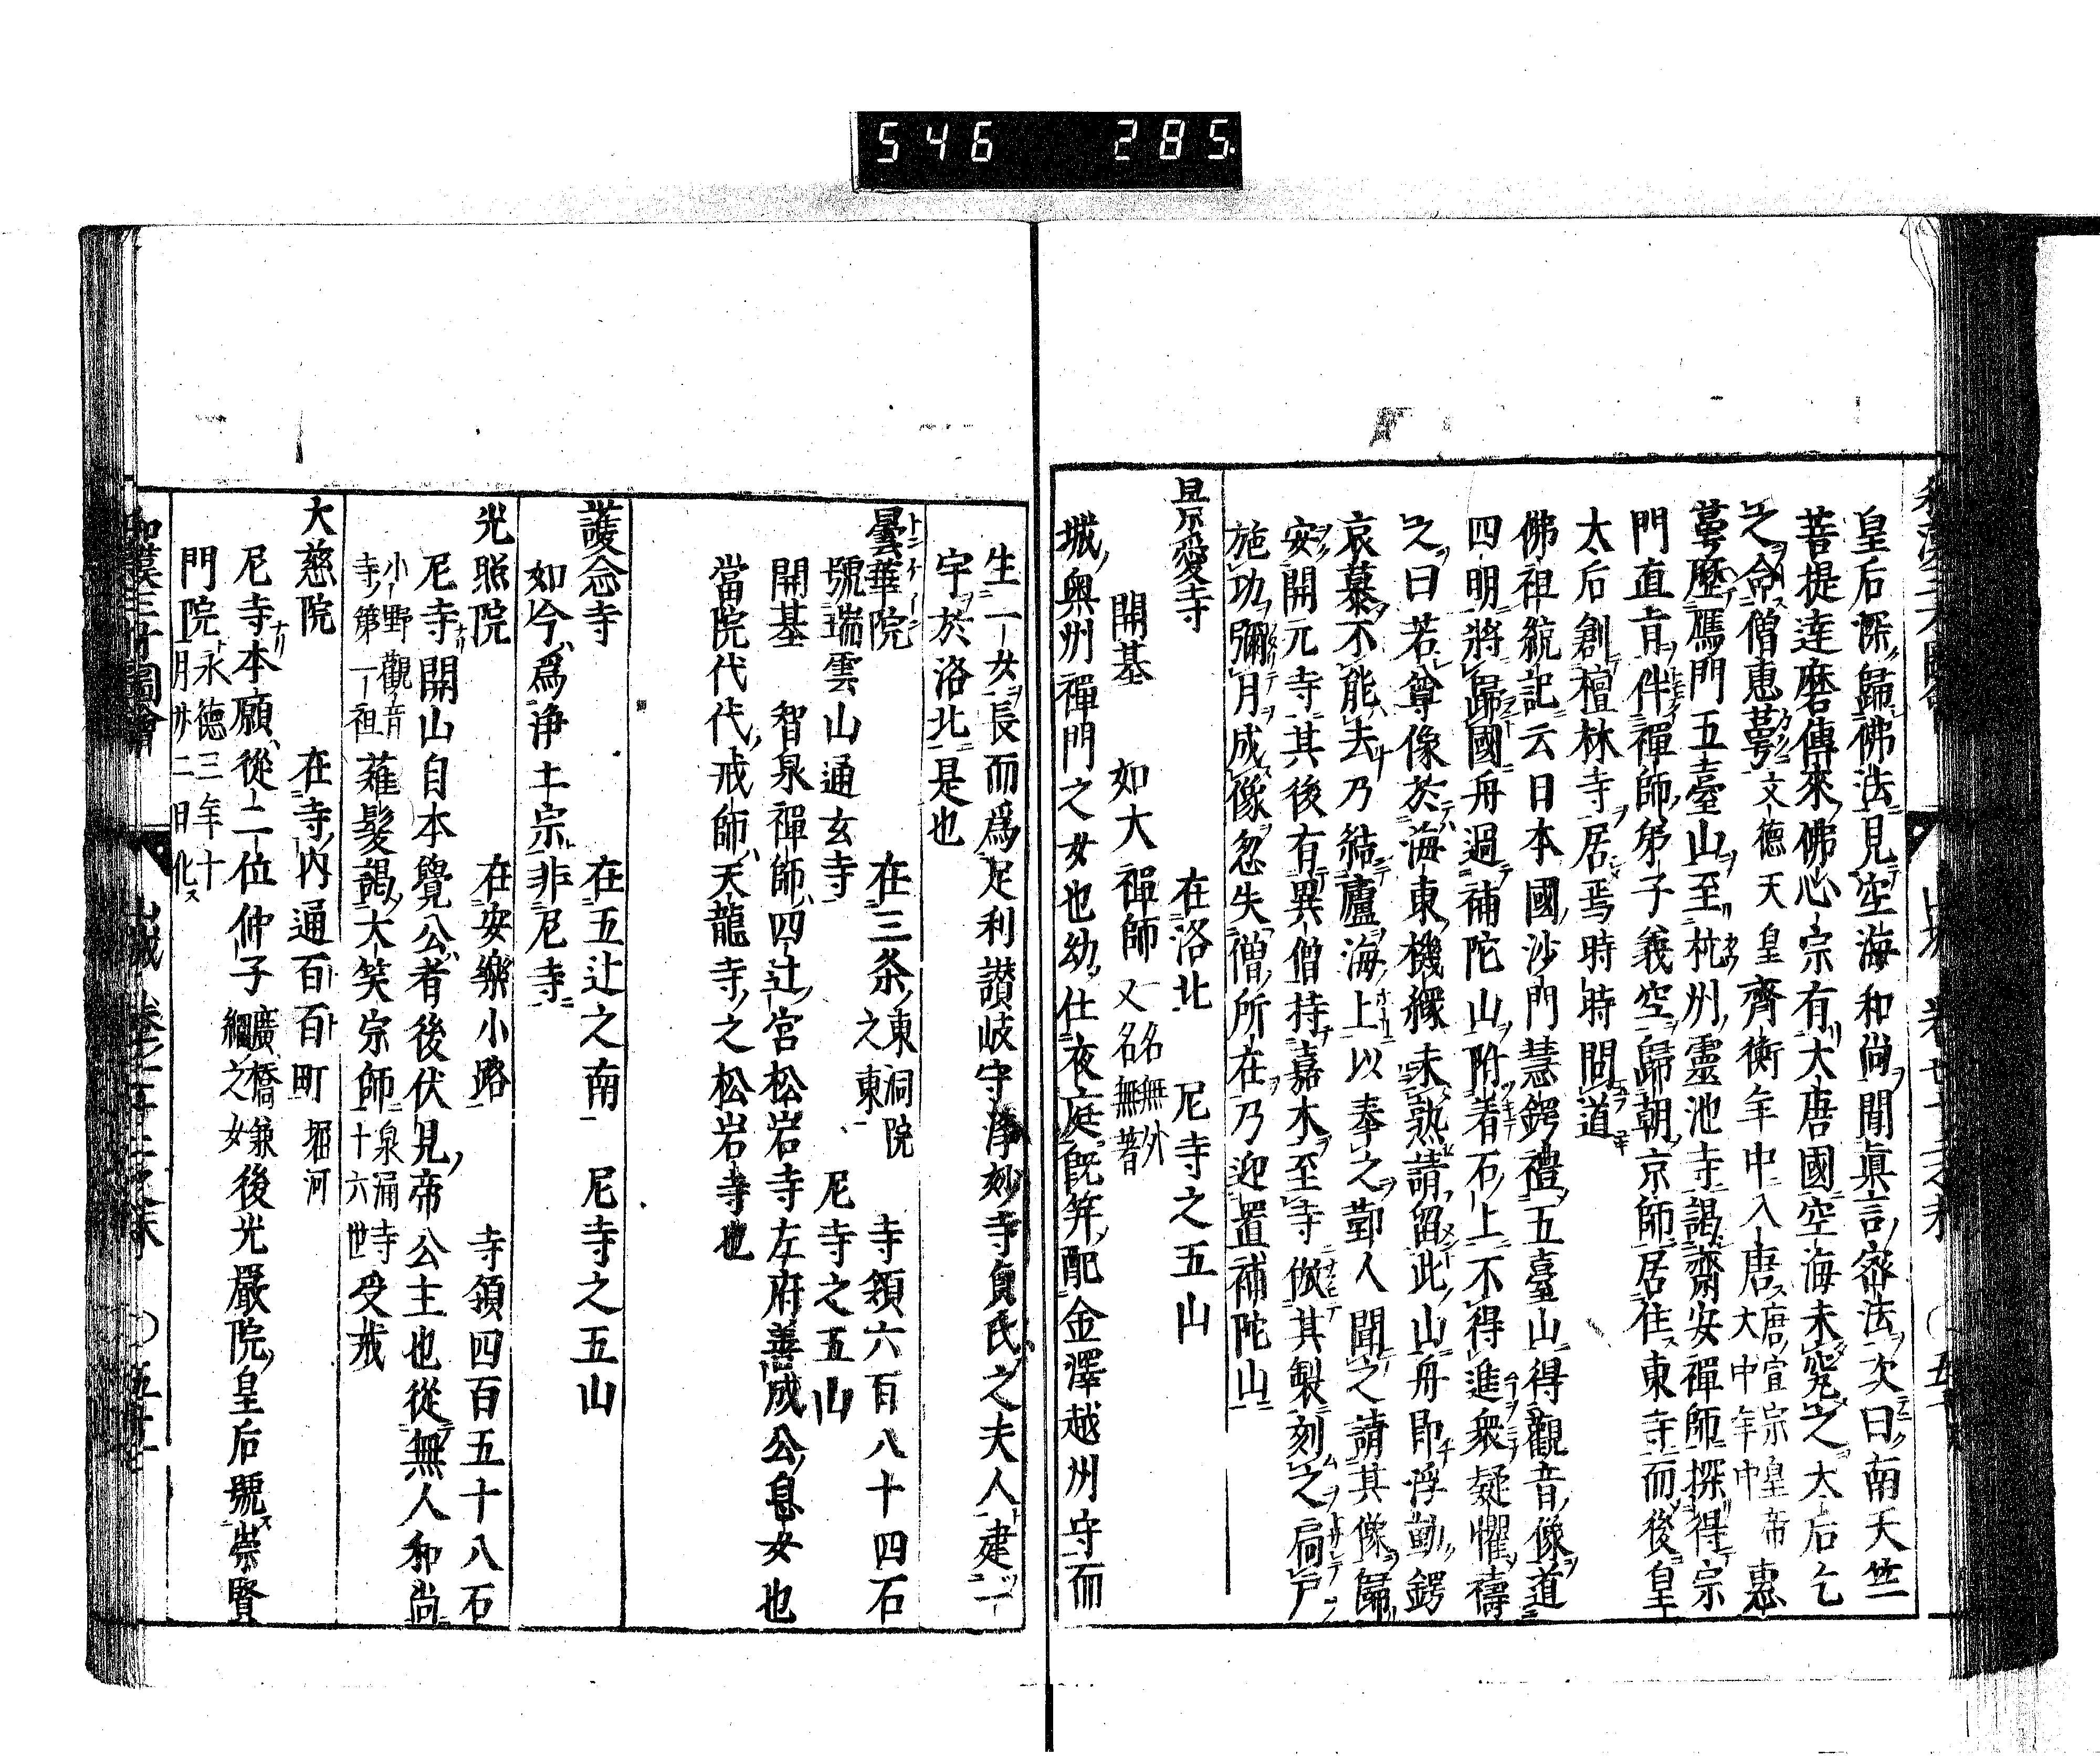 546 285
皇后深歸佛法見空海和尚聞眞言密法次曰南天竺
菩提達磨傳來佛心宗有大唐國空海未究之太后乞
之命僧惠萼文德天皇齊衡年中入唐唐宣宗皇帝大中年中惠
萼歷鴈門五臺山至杭州靈池寺謁齋安禪師採得宗
門直旨伴禪師弟子義空歸朝京師居住東寺而後皇
太后創檀林寺居焉時時問道
佛祖統記云日本國沙門慧鍔禮五臺山得觀音像道
四明將歸國舟過補陀山附着石上不得進衆疑懼禱
之曰若尊像於海東機緣未熟請留此山舟即浮動鍔
哀慕不能去乃結廬海上以奉之鄞人聞之請其像歸
安開元寺其後有異僧持嘉木至寺倣其製刻之扃戸
施功彌月成像忽失僧所在乃迎置補陀山
景愛寺 在洛北 尼寺之五山
開基 如大禪師 一名無外又名無著
城奥州禪門之女也幼仕夜庭既筓配金澤越州守而
生一女長而爲足利讃岐守淨妙寺貞氏之夫人建一
宇於洛北是也
曇華院 トンケーニ 在三条東洞院之東 寺領六百八十四石
號瑞雲山通玄寺 尼寺之五山
開基 智泉禪師四辻宮松岩寺左府善成公息女也
當院代代戒師天龍寺之松岩寺也
護念寺 在五辻之南 尼寺之五山
如今爲浄土宗非尼寺
光照院 在安樂小路 寺領四百五十八石
尼寺開山自本覺公者後伏見帝公主也從無人和尚
小野觀音寺第一祖薙髮謁大笑宗師泉涌寺十六世受戒
大慈院 在寺内通百百町堀河
尼寺本願從二位仲子廣橋兼綱之女後光嚴院皇后號崇賢
門院永德三年十一月廿二日化ス